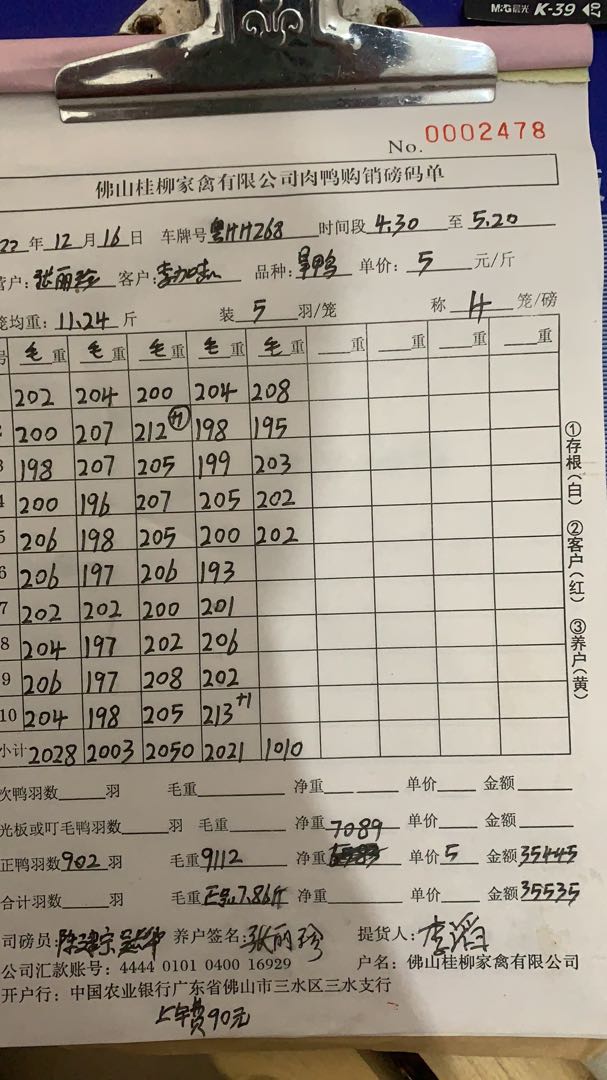 M&G晨光 K-39
No. 0002478
佛山桂柳家禽有限公司肉鸭购销磅码单
22年12月16日 车牌号粤HH268 时间段4.30至5.20
营户:张丽珍 客户: 品种:旱鸭 单价:5元/斤
笼均重:11.24斤 装5羽/笼 称4笼/磅
号 毛重 毛重 毛重 毛重 毛重 重 重 重 重
202 204 200 204 208
2 200 207 212 +1 198 195
3 198 207 205 199 203
4 200 196 207 205 202
5 206 198 205 200 202
6 206 197 206 193
7 202 202 200 201
8 204 197 202 206
9 206 197 208 202
10 204 198 205 213 +1
小计 2028 2003 2050 2021 1010
①存根(白) ②客户(红) ③养户(黄)
次鸭羽数 羽 毛重 净重 单价 金额
光板或叮毛鸭羽数 羽 毛重 净重7089 单价 金额
正鸭羽数902羽 毛重9112 净重 单价5 金额35445
合计羽数 羽 毛重正品7.86斤 净重 单价 金额35535
司磅员: 养户签名:张丽珍 提货人:李滔
公司汇款账号:4444 0101 0400 16929 户名:佛山桂柳家禽有限公司
开户行:中国农业银行广东省佛山市三水区三水支行
上车费90元